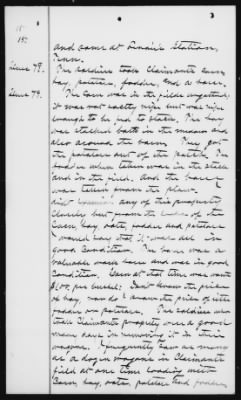 3
15
187
and came at Lenoir Station,
Tenn.
The soldiers took Claimants corn,
Items 79. hay, potatoes, fodder, and a horse.
Items 79. The corn was in the field ungathered,
it was not hardly ripe but was ripe
enough to be fed to stock. The hay
was stacked both in the meadow and
also around the barn. They got
the potatoes out of the patch. The
fodder when taken was in the stack
and in the field. And the horse
was taken from the plow.
didn't any of this property
Clearly but from the of the
corn, hay, oats, fodder and potatoes
I would say that it was all in
good condition. The horse was a
valuable work horse and was in good
condition. Corn at that time was worth
$1.00. per bushel: Don't know the price
of hay, nor do I know the price of the
fodder or potatoes. The soldiers who
took Claimants property were a good
many days in removing it in their
wagons. I frequently saw as many
as a dozen wagons in Claimants
field at one time loading with
Corn, hay, oats, potatoes and fodder